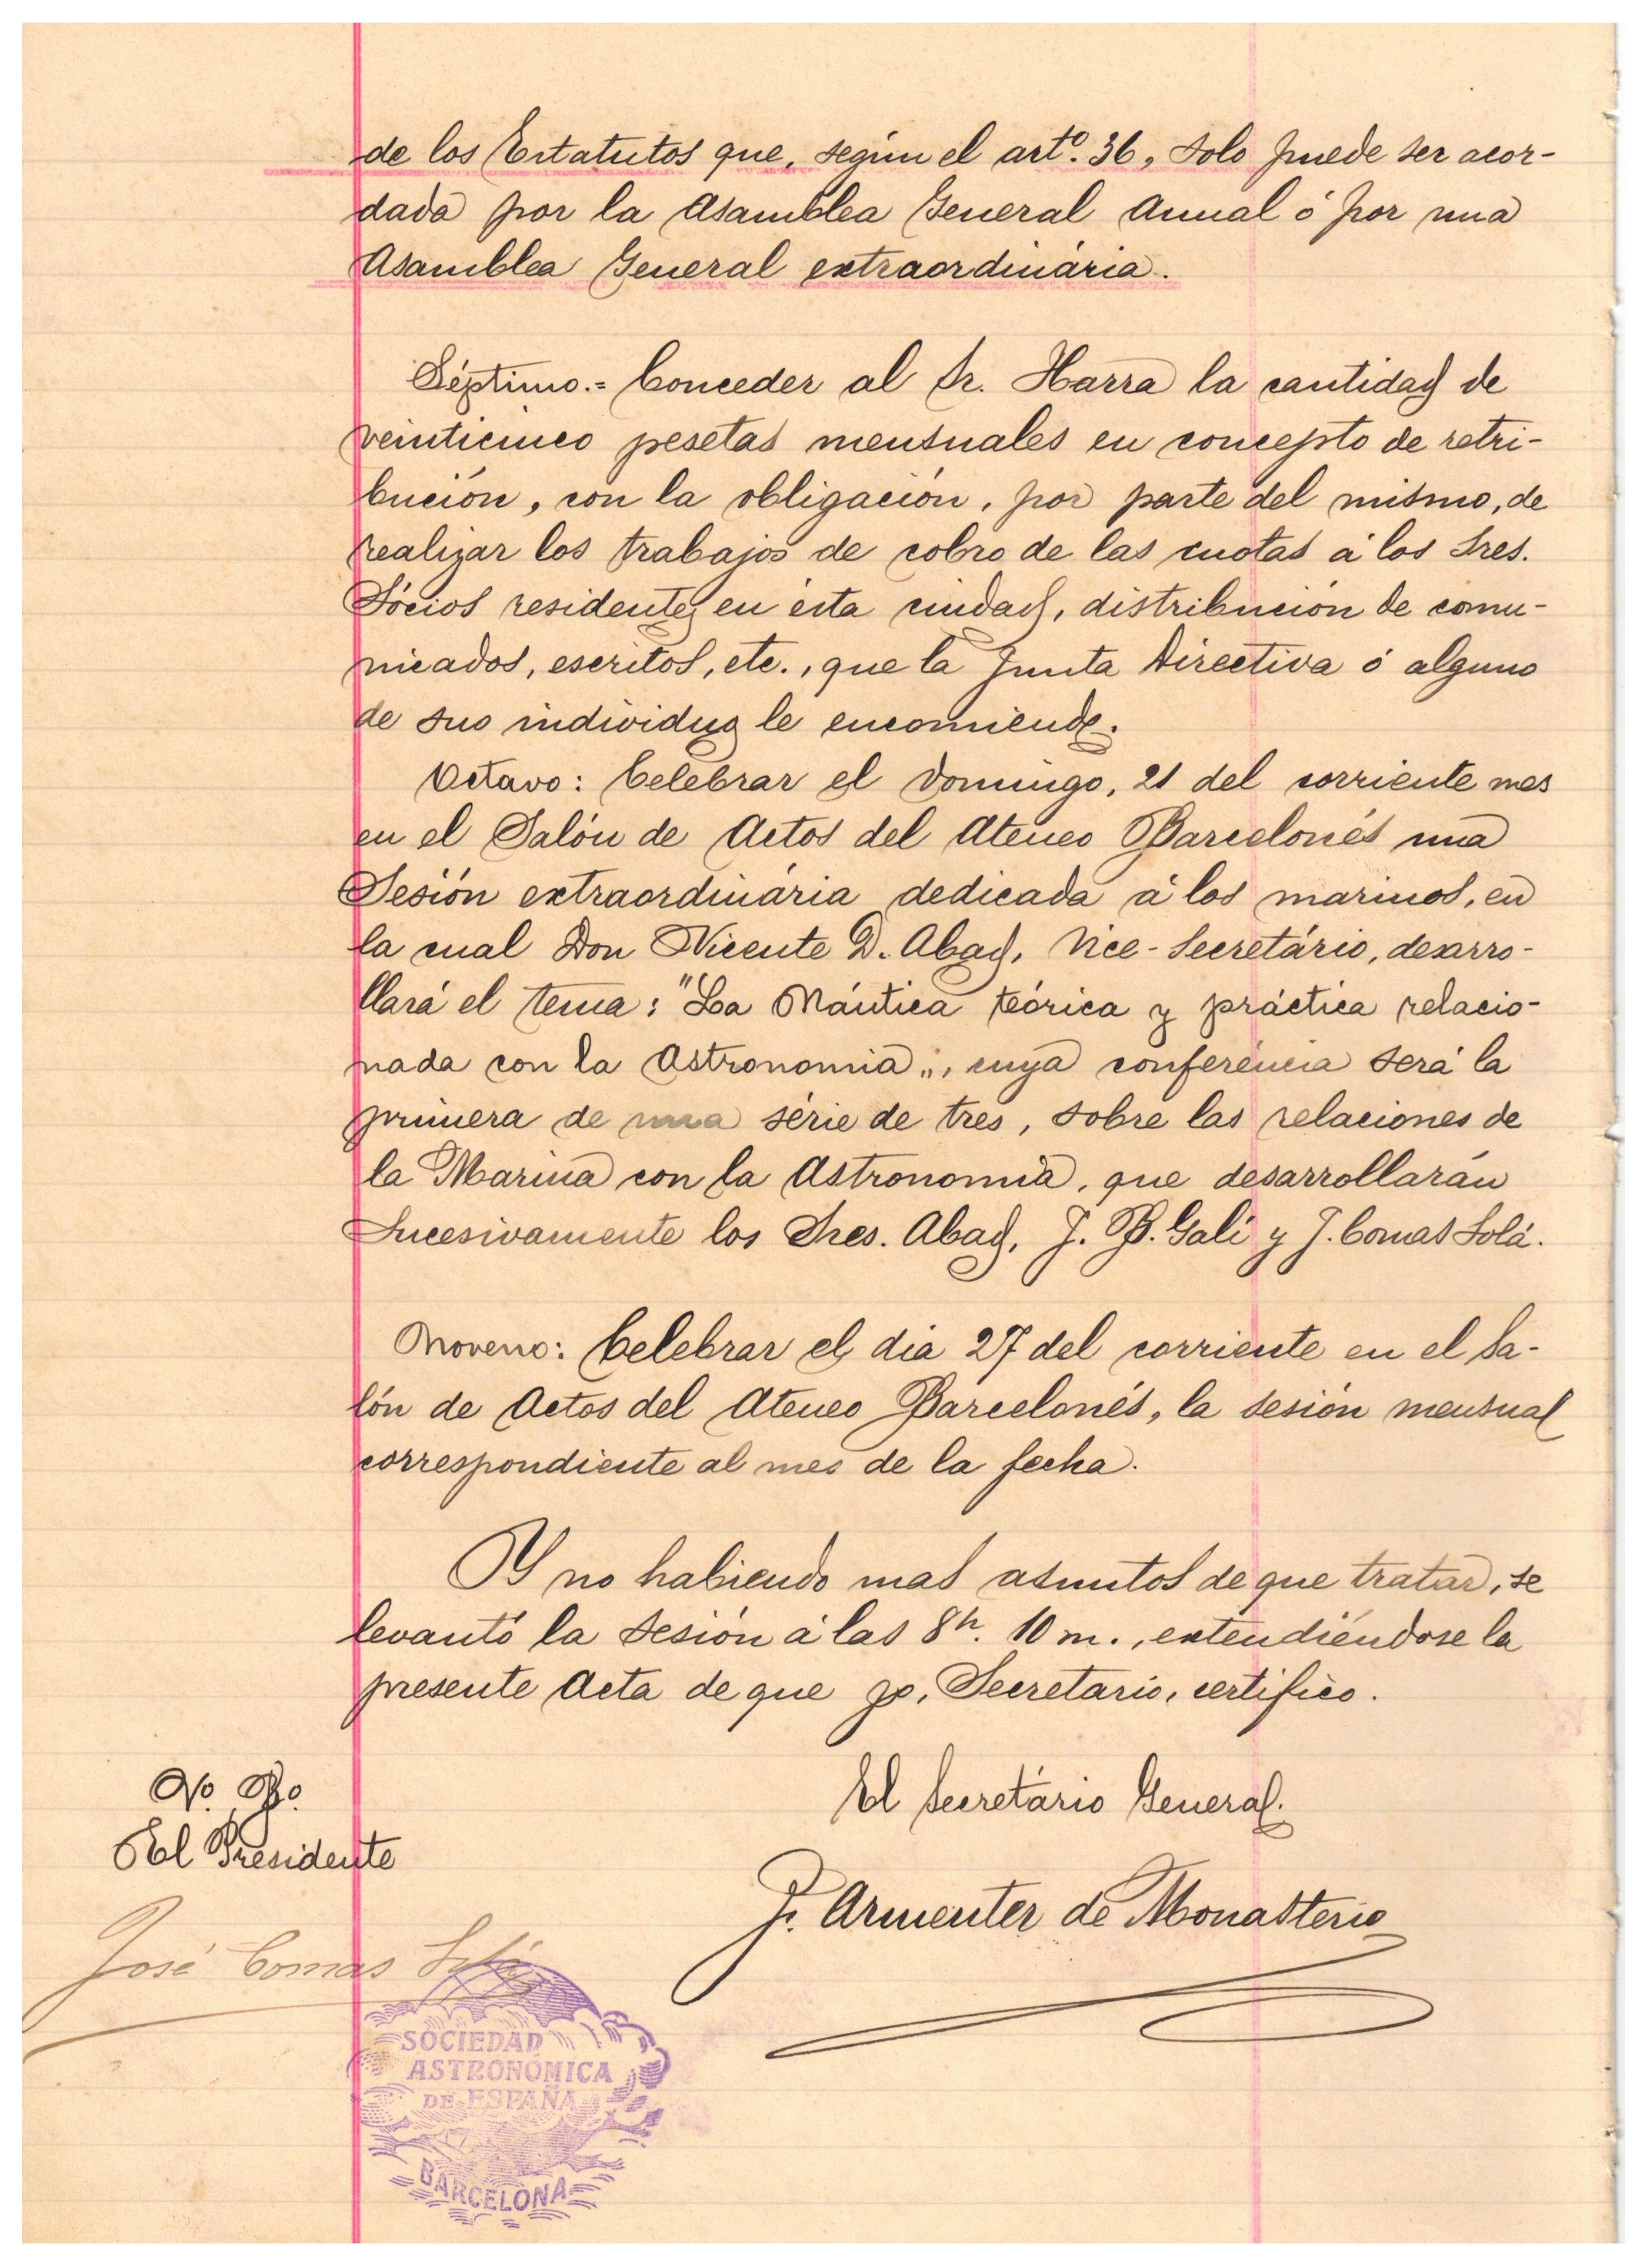 de los Estatutos que, según el artº. 36, solo puede ser acor-
dada por la Asamblea General Anual ó por una
Asamblea General extraordinária.
Séptimo.= Conceder al Sr. Harra la cantidad de
veinticinco pesetas mensuales en concepto de retri-
bución, con la obligación, por parte del mismo, de
realizar los trabajos de cobro de las cuotas á los Sres.
Sócios residentes en ésta ciudad, distribución de comu-
nicados, escritos, etc., que la Junta Directiva ó alguno
de sus individuos le encomiende.
Octavo: Celebrar el Domingo, 21 del corriente mes
en el Salón de Actos del Ateneo Barcelonés una
Sesión extraordinária dedicada á los marinos, en
la cual Don Vicente D. Abad, Vice-Secretário, desarro-
llará el tema: "La Náutica teórica y práctica relacio-
nada con la Astronomia„, cuya conferéncia será la
primera de una série de tres, sobre las relaciones de
la Marina con la Astronomía, que desarrollarán
sucesivamente los Sres. Abad, J. B. Galí y J. Comas Solá.
Noveno: Celebrar el dia 27 del corriente en el Sa-
lón de Actos del Ateneo Barcelonés, la sesión mensual
correspondiente al mes de la fecha.
Y no habiendo mas asuntos de que tratar, se
levantó la sesión á las 8h. 10 m., extendiéndose la
presente Acta de que yo, Secretario, certifico.
Vº. Bº.
El Presidente
José Comas Solá
El Secretário General.
J. Armenter de Monasterio
SOCIEDAD
ASTRONÓMICA
DE ESPAÑA
BARCELONA